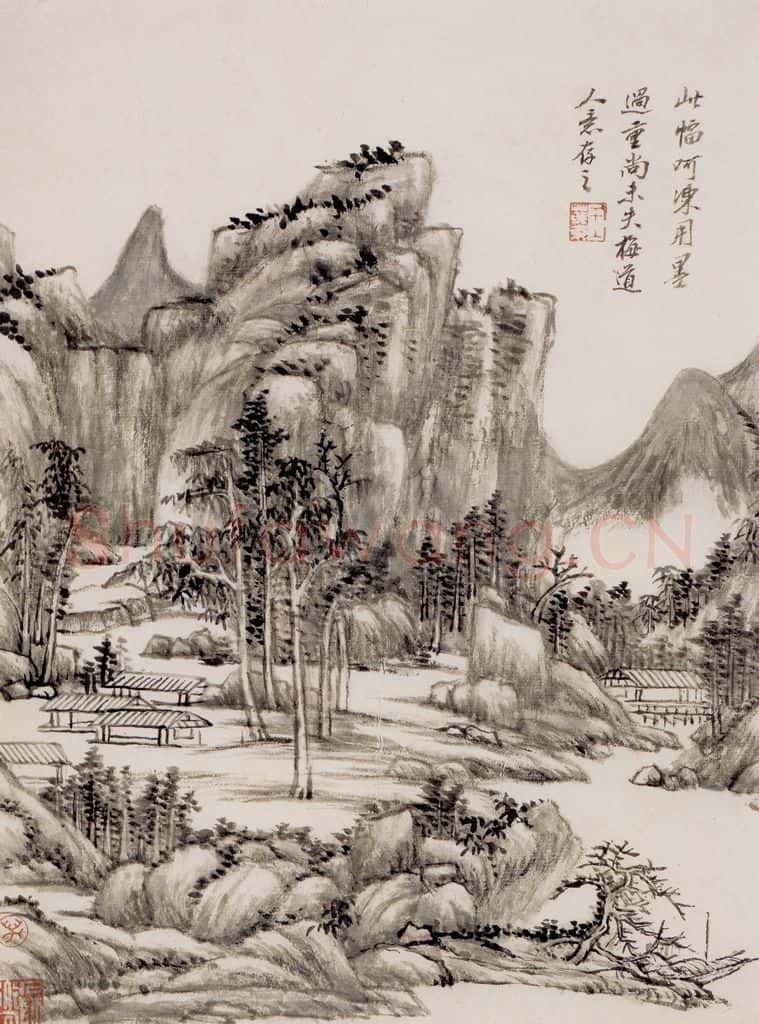 此幅呵凍用墨
過重尚未失梅道
人意存之
Shufawang.CN